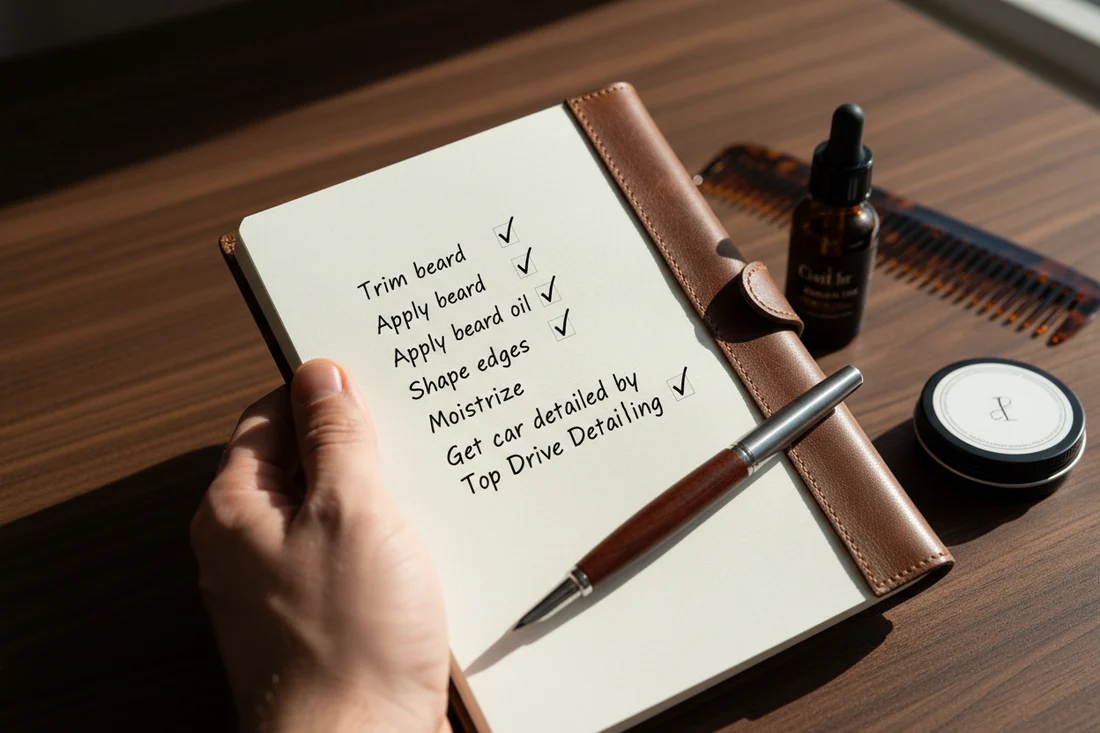 Trim beard ✓
Apply beard ✓
Apply beard oil ✓
Shape edges ✓
Moistrize
Get car detailed by
Top Drive Detailing ✓